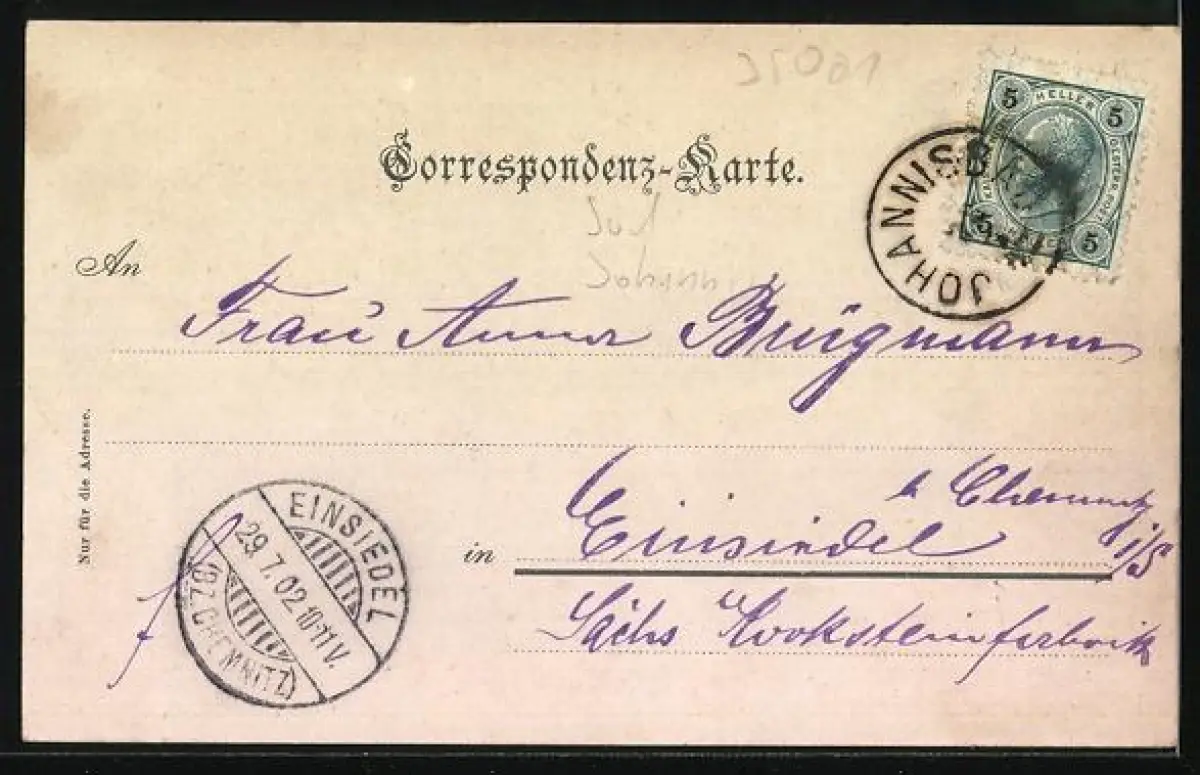 35081
Correspondenz-Karte.
5 HELLER 5
5 5
JOHANNISBAD
Sud
Johann
An
Frau Anna Brügmann
Nur für die Adresse.
b Chemnitz
in Einsiedel i/S
Sächs Kooksteinfabrik
EINSIEDEL
29.7.02.10-11V.
(BZ.CHEMNITZ)